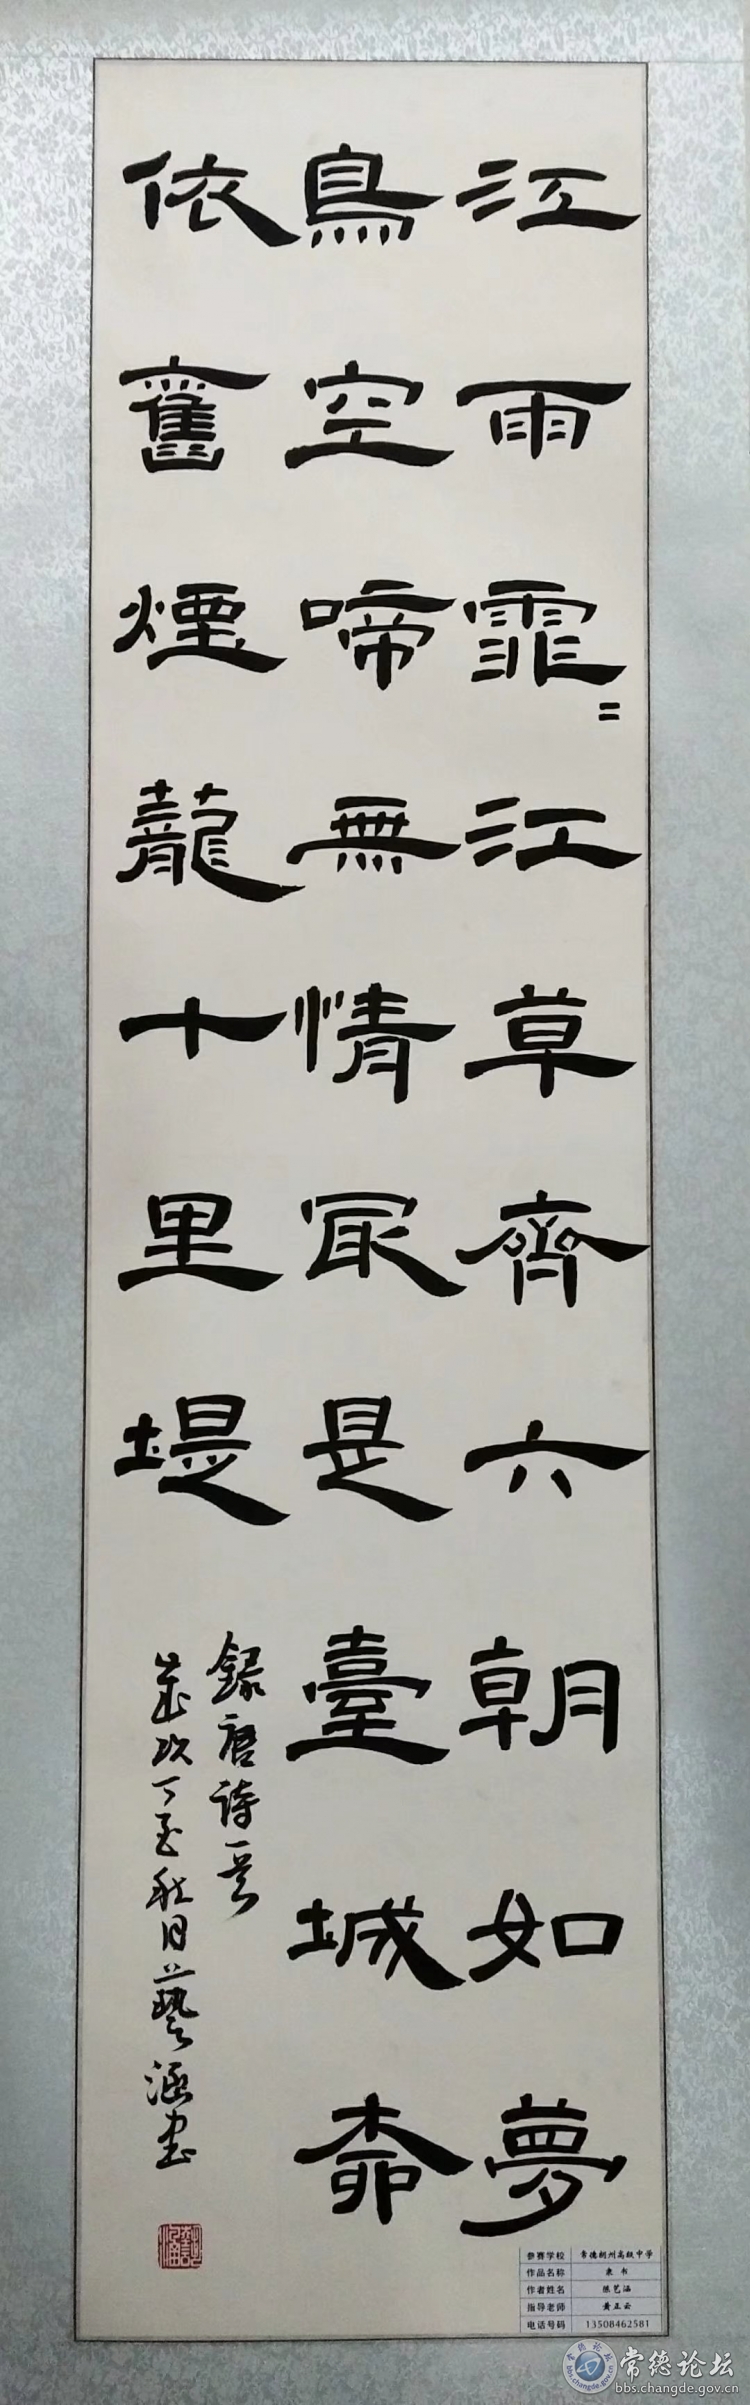 江雨霏〻江草齊六朝如夢
鳥空啼無情冣是臺城桺
依舊煙蘢十里堤
録唐詩一首
歲次丁酉秋日藝涵書
参赛学校 常德朗州高级中学
作品名称 隶书
作者姓名 陈艺涵
指导老师 黄正云
电话号码 13508462581
常德论坛
bbs.changde.gov.cn